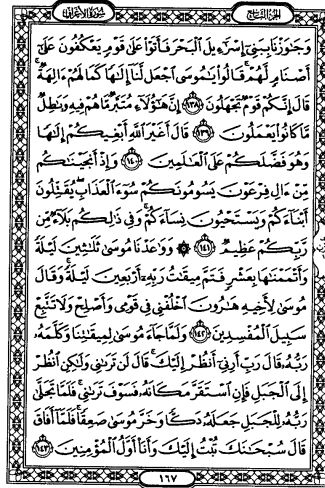 سُورَةُ الأَعْرَافِ الجُزْءُ التَّاسِعُ
وَجَٰوَزْنَا بِبَنِىٓ إِسْرَٰٓءِيلَ ٱلْبَحْرَ فَأَتَوْا۟ عَلَىٰ قَوْمٍ يَعْكُفُونَ عَلَىٰٓ
أَصْنَامٍ لَّهُمْ ۚ قَالُوا۟ يَٰمُوسَى ٱجْعَل لَّنَآ إِلَٰهًا كَمَا لَهُمْ ءَالِهَةٌ ۚ
قَالَ إِنَّكُمْ قَوْمٌ تَجْهَلُونَ ﴿١٣٨﴾ إِنَّ هَٰٓؤُلَآءِ مُتَبَّرٌ مَّا هُمْ فِيهِ وَبَٰطِلٌ
مَّا كَانُوا۟ يَعْمَلُونَ ﴿١٣٩﴾ قَالَ أَغَيْرَ ٱللَّهِ أَبْغِيكُمْ إِلَٰهًا
وَهُوَ فَضَّلَكُمْ عَلَى ٱلْعَٰلَمِينَ ﴿١٤٠﴾ وَإِذْ أَنجَيْنَٰكُم
مِّنْ ءَالِ فِرْعَوْنَ يَسُومُونَكُمْ سُوٓءَ ٱلْعَذَابِ ۖ يُقَتِّلُونَ
أَبْنَآءَكُمْ وَيَسْتَحْيُونَ نِسَآءَكُمْ ۚ وَفِى ذَٰلِكُم بَلَآءٌ مِّن
رَّبِّكُمْ عَظِيمٌ ﴿١٤١﴾ ۞ وَوَٰعَدْنَا مُوسَىٰ ثَلَٰثِينَ لَيْلَةً
وَأَتْمَمْنَٰهَا بِعَشْرٍ فَتَمَّ مِيقَٰتُ رَبِّهِۦٓ أَرْبَعِينَ لَيْلَةً ۚ وَقَالَ
مُوسَىٰ لِأَخِيهِ هَٰرُونَ ٱخْلُفْنِى فِى قَوْمِى وَأَصْلِحْ وَلَا تَتَّبِعْ
سَبِيلَ ٱلْمُفْسِدِينَ ﴿١٤٢﴾ وَلَمَّا جَآءَ مُوسَىٰ لِمِيقَٰتِنَا وَكَلَّمَهُۥ
رَبُّهُۥ قَالَ رَبِّ أَرِنِىٓ أَنظُرْ إِلَيْكَ ۚ قَالَ لَن تَرَىٰنِى وَلَٰكِنِ ٱنظُرْ
إِلَى ٱلْجَبَلِ فَإِنِ ٱسْتَقَرَّ مَكَانَهُۥ فَسَوْفَ تَرَىٰنِى ۚ فَلَمَّا تَجَلَّىٰ
رَبُّهُۥ لِلْجَبَلِ جَعَلَهُۥ دَكًّا وَخَرَّ مُوسَىٰ صَعِقًا ۚ فَلَمَّآ أَفَاقَ
قَالَ سُبْحَٰنَكَ تُبْتُ إِلَيْكَ وَأَنَا۠ أَوَّلُ ٱلْمُؤْمِنِينَ ﴿١٤٣﴾
١٦٧